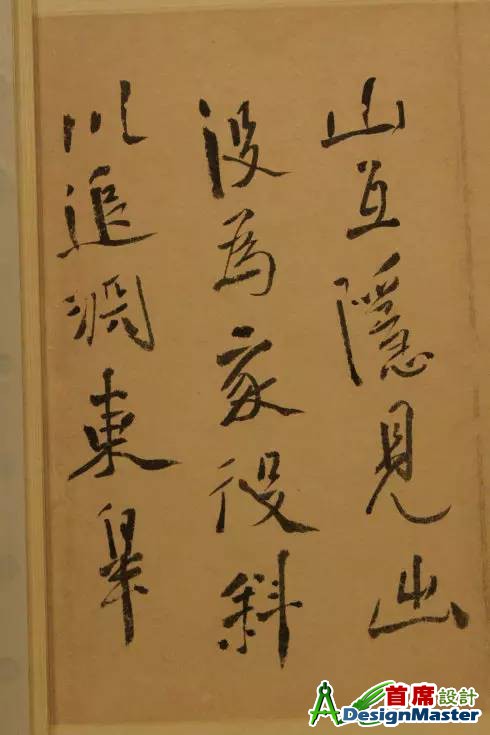 山互隱見出
沒為我役斜
川追淵東皋
首席設計
DesignMaster